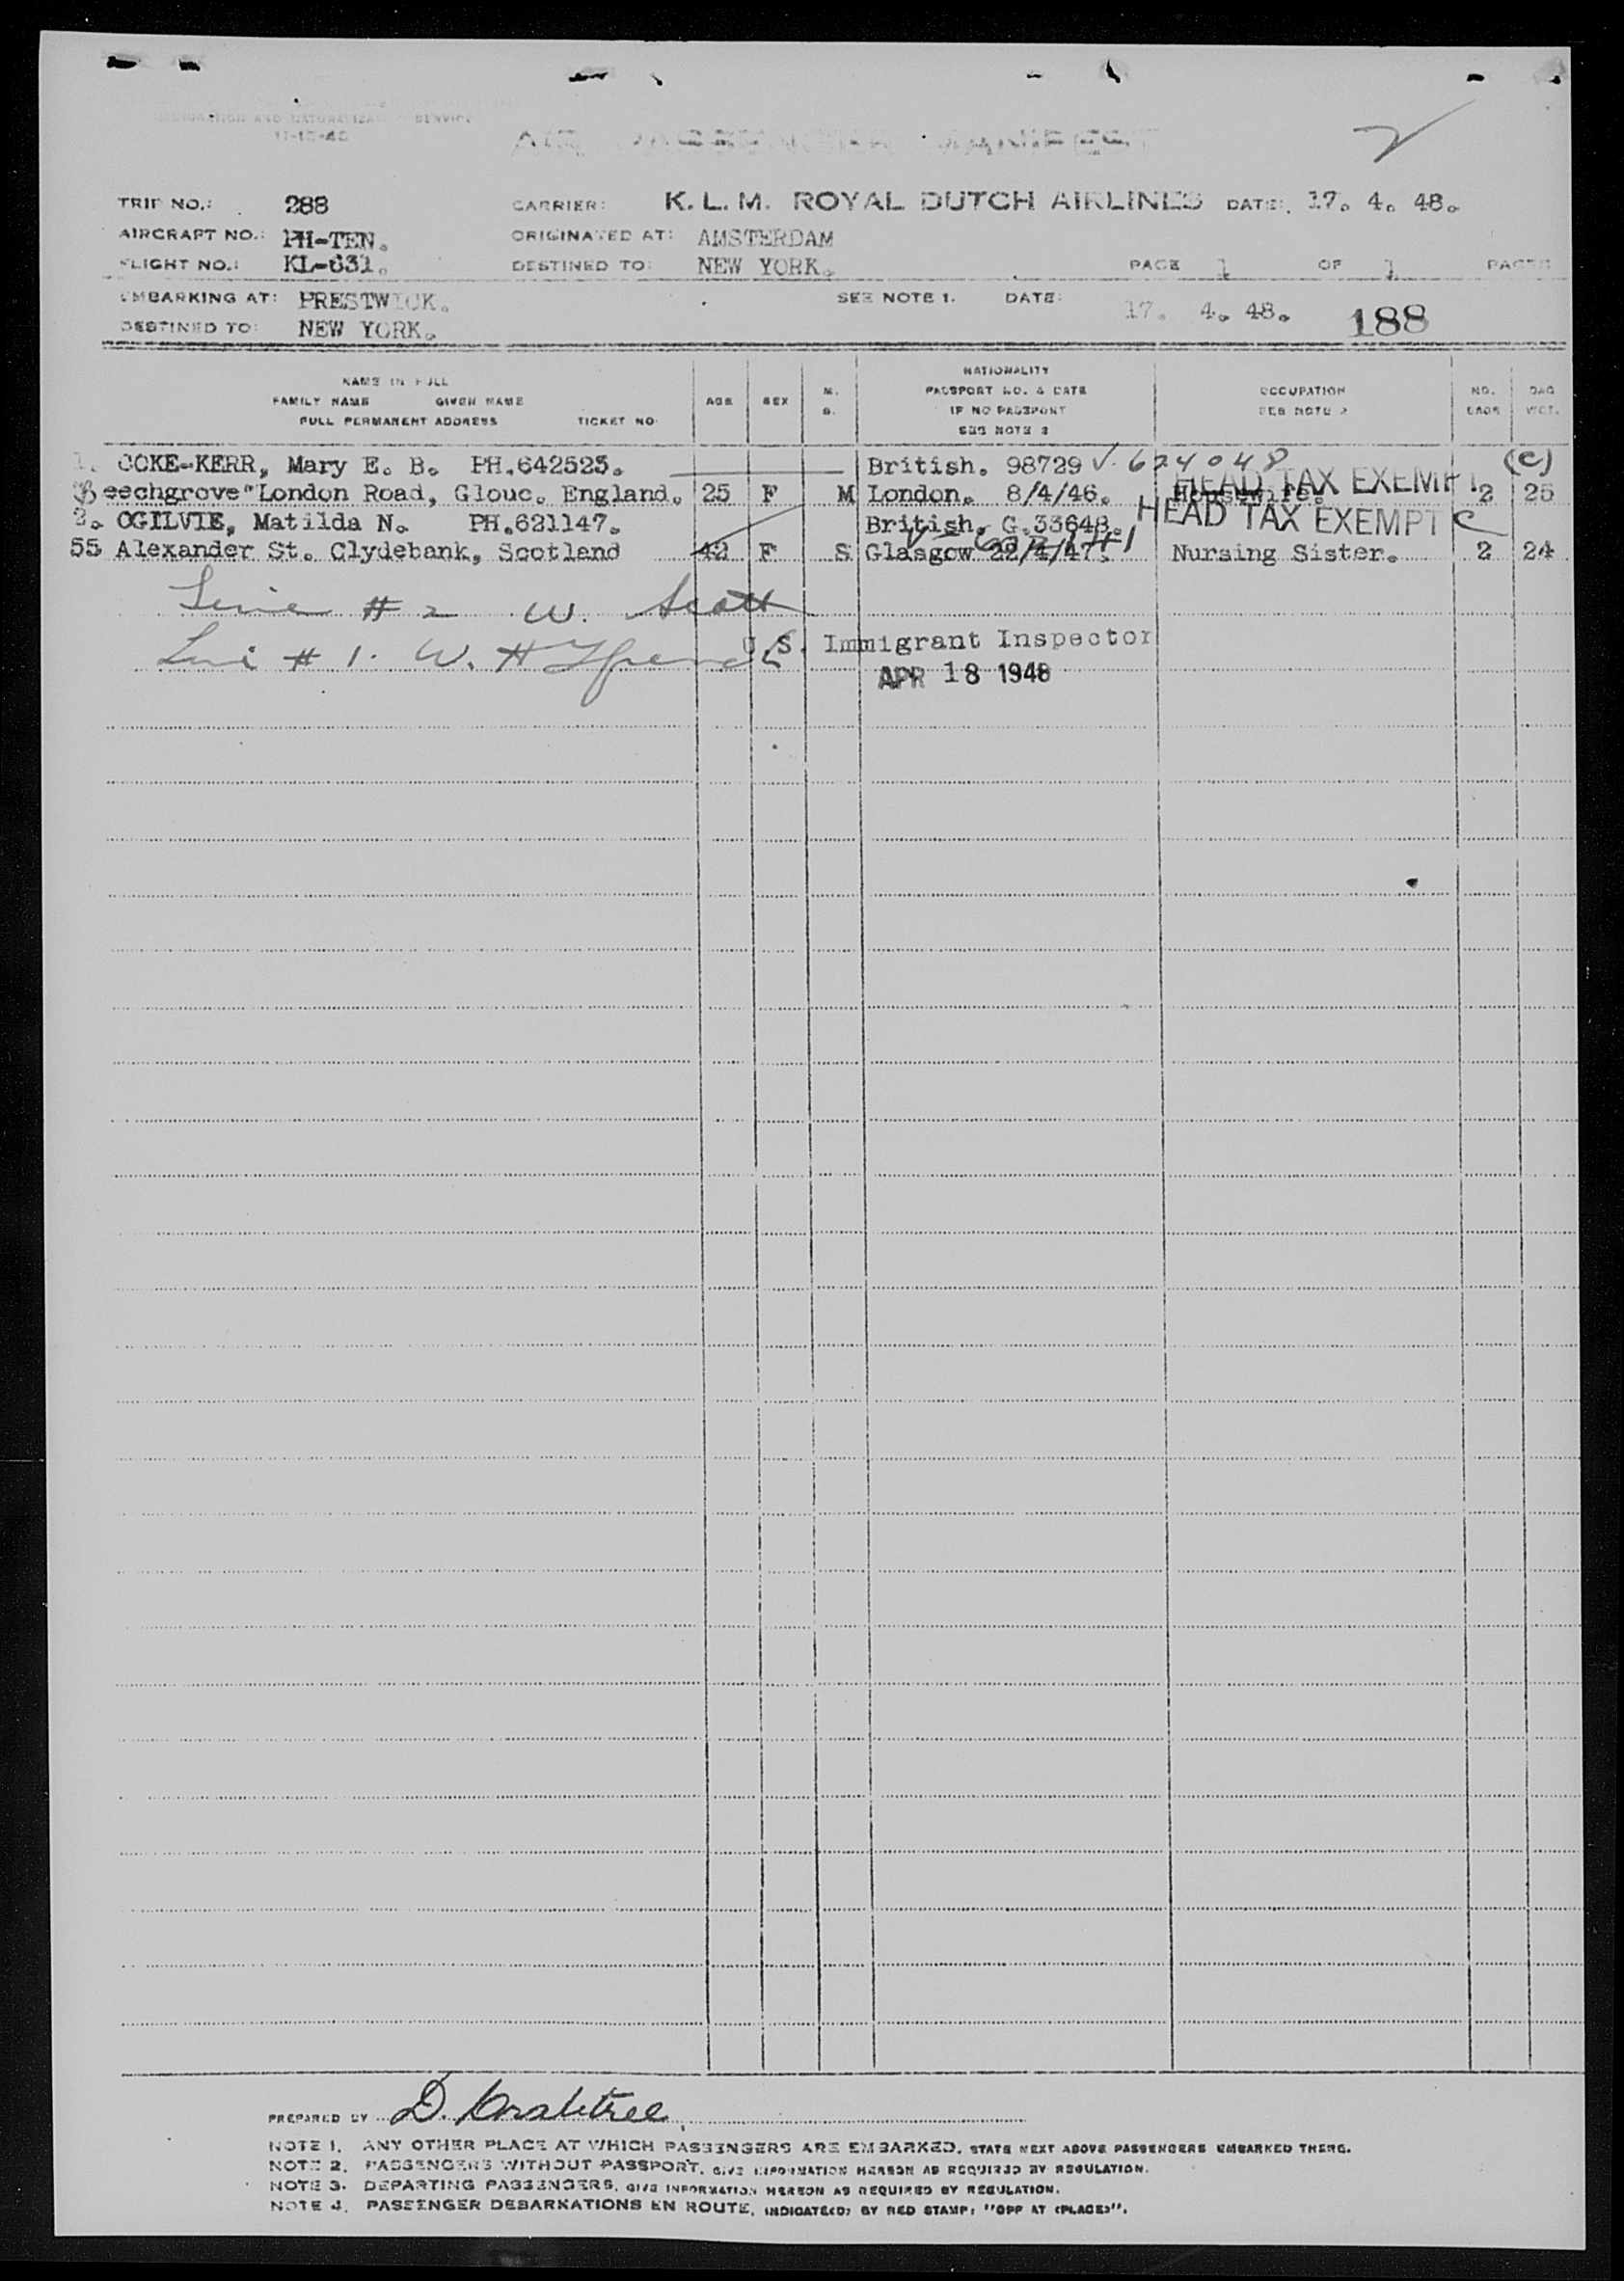 IMMIGRATION AND NATURALIZATION SERVICE
AIR PASSENGER MANIFEST
TRIP NO.: 288 CARRIER: K.L.M. ROYAL DUTCH AIRLINES DATE: 17. 4. 48.
AIRCRAFT NO.: PH-TEN. ORIGINATED AT: AMSTERDAM
FLIGHT NO.: KL-631. DESTINED TO: NEW YORK. PAGE 1 OF 1 PAGES
EMBARKING AT: PRESTWICK. SEE NOTE 1. DATE: 17. 4. 48.
188
DESTINED TO: NEW YORK.
NAME IN FULL
FAMILY NAME GIVEN NAME
FULL PERMANENT ADDRESS TICKET NO.
AGE SEX M. S.
NATIONALITY
PASSPORT NO. & DATE
IF NO PASSPORT
SEE NOTE 2
OCCUPATION
SEE NOTE 2
NO. BAGS
BAG WGT.
1. COKE-KERR, Mary E. B. PH.642525. British. 98729 V. 624048 (c)
HEAD TAX EXEMPT
Beechgrove" London Road, Glouc. England. 25 F M London. 8/4/46. Housewife. 2 25
2. OGILVIE, Matilda N. PH.621147. British. G.33648. HEAD TAX EXEMPT C
55 Alexander St. Clydebank, Scotland 42 F S Glasgow 22/4/47. Nursing Sister. 2 24
Line # 2 W. Scott
Line # 1. W. H
U.S. Immigrant Inspector
APR 18 1948
PREPARED BY D. Crabtree
NOTE 1. ANY OTHER PLACE AT WHICH PASSENGERS ARE EMBARKED, STATE NEXT ABOVE PASSENGERS EMBARKED THERE.
NOTE 2. PASSENGERS WITHOUT PASSPORT, GIVE INFORMATION HEREON AS REQUIRED BY REGULATION.
NOTE 3. DEPARTING PASSENGERS, GIVE INFORMATION HEREON AS REQUIRED BY REGULATION.
NOTE 4. PASSENGER DEBARKATIONS EN ROUTE, INDICATE(D) BY RED STAMP: "OFF AT (PLACE)".